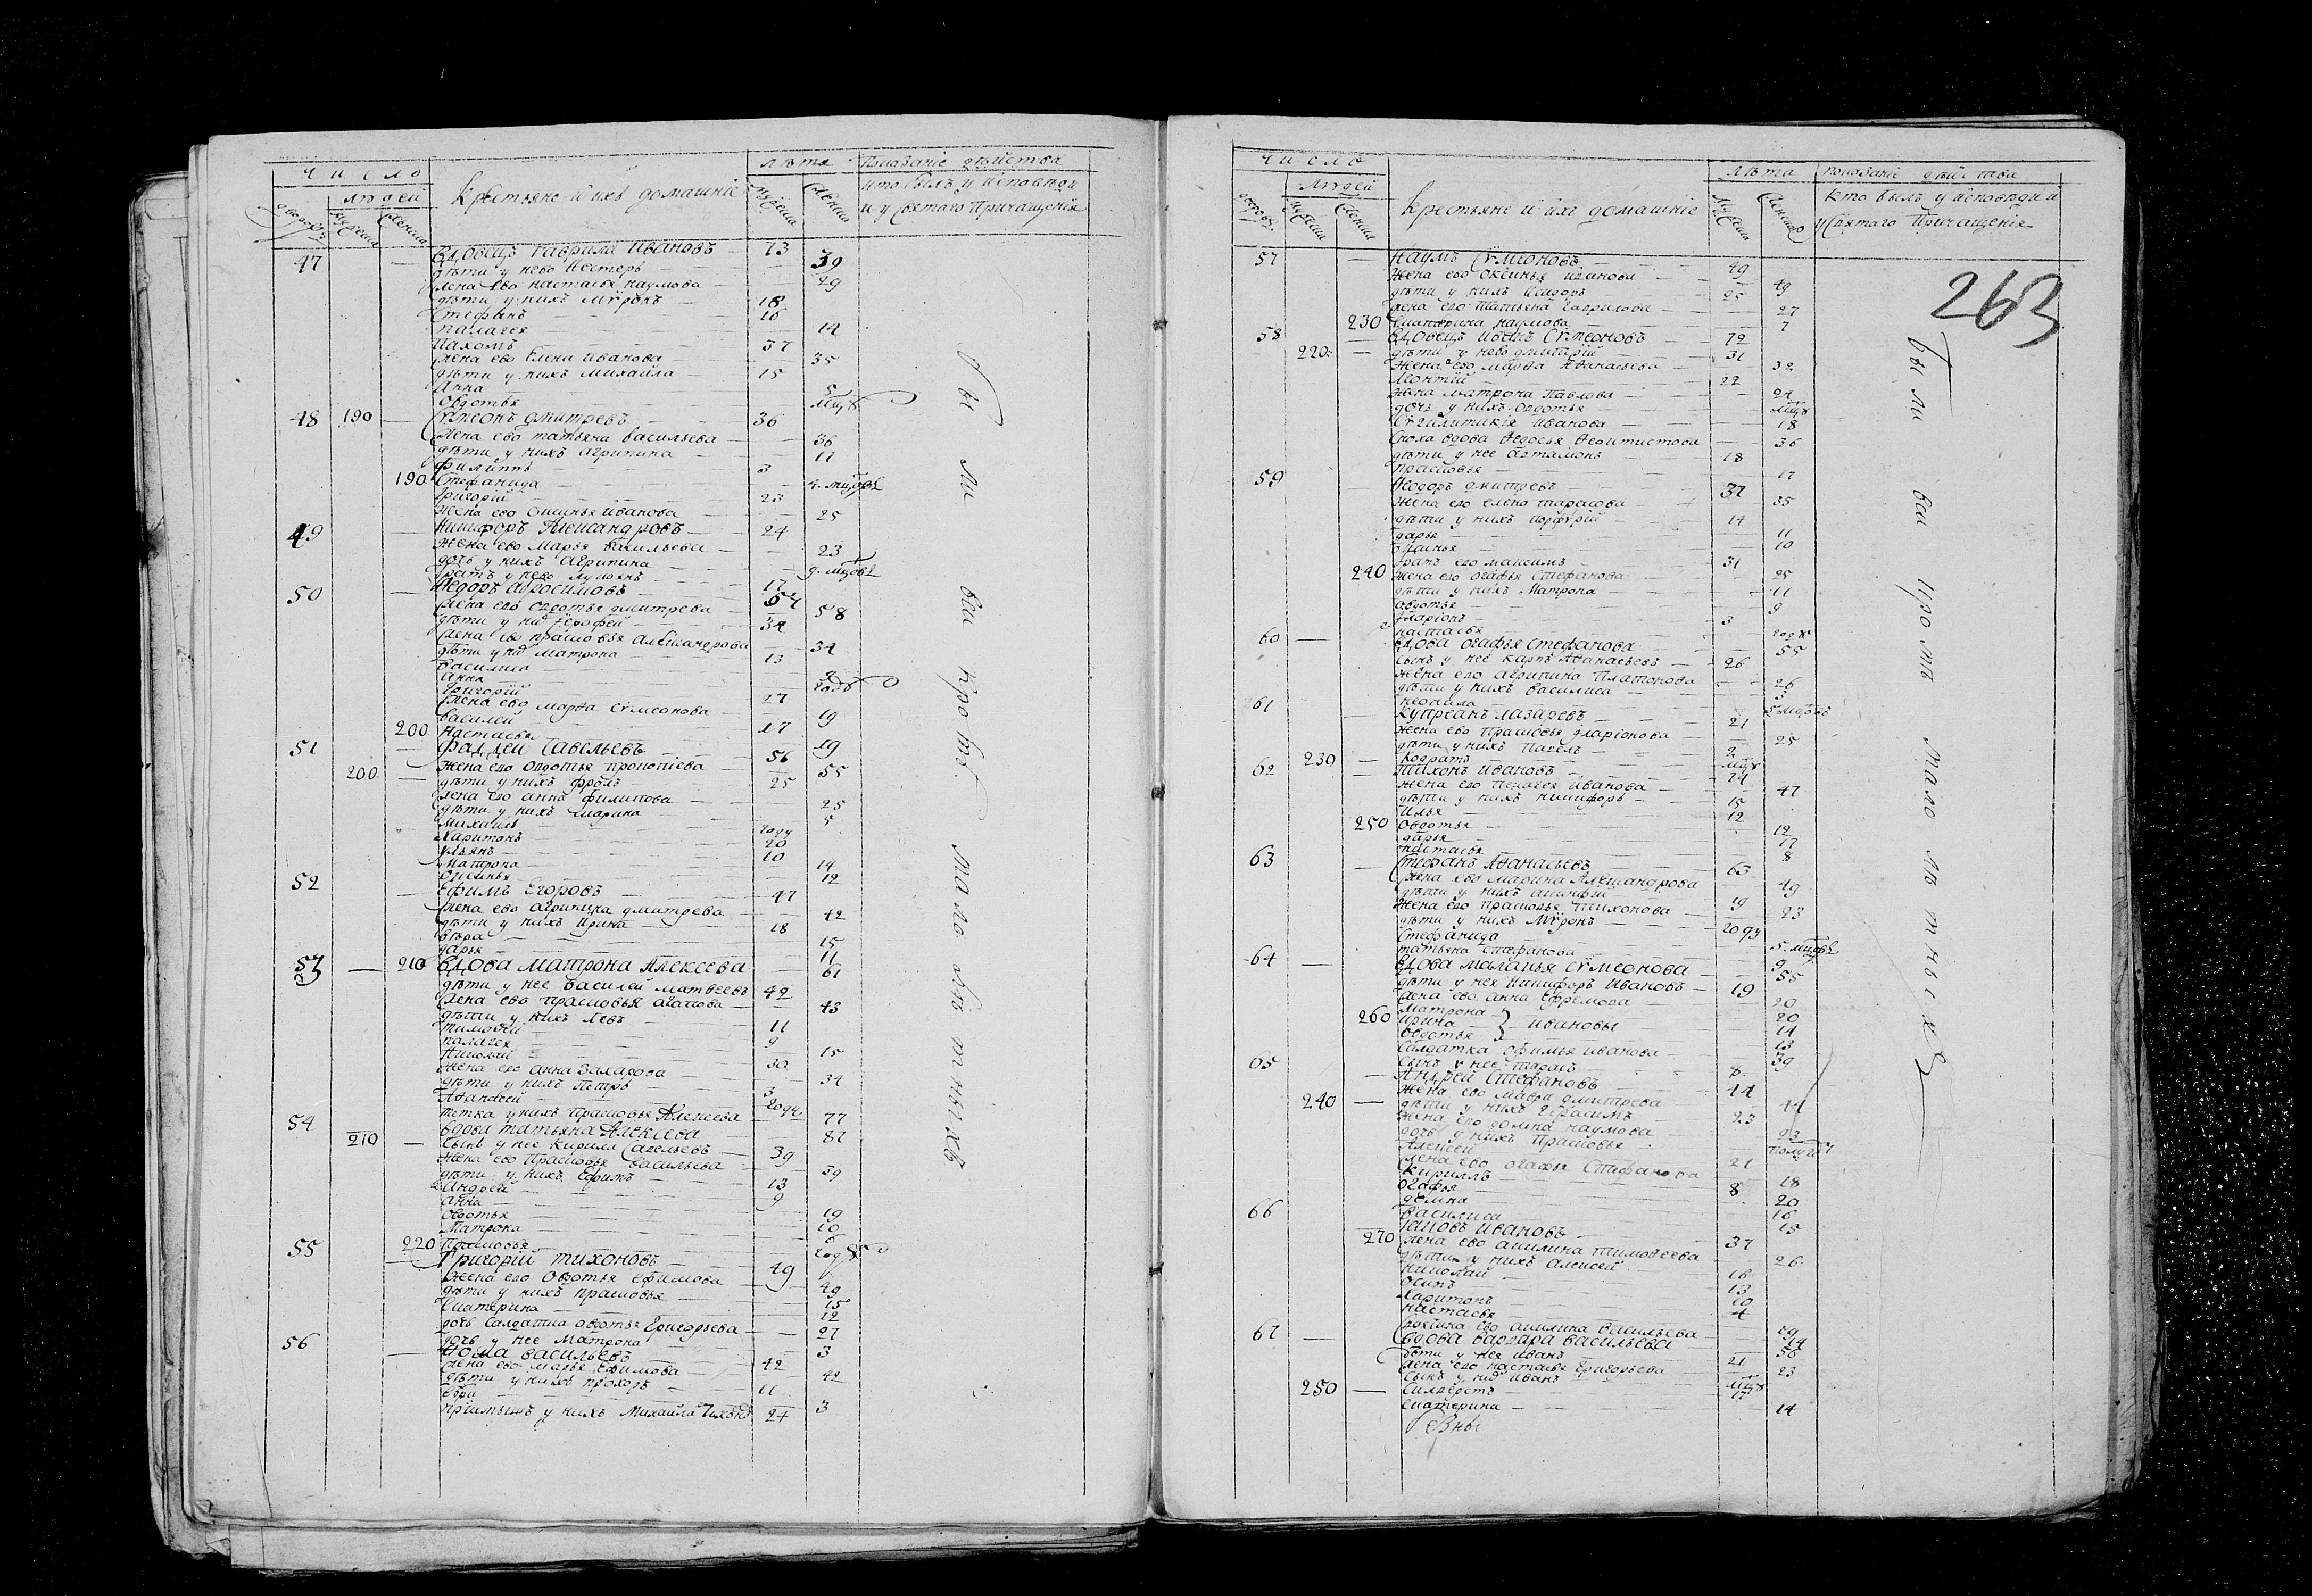 число
людей
лѣта
Показаніе дѣйства
дворовъ
мужеска
женска
Крестьяне и ихъ домашніе
мужеска
женска
кто былъ у исповѣди
и у святаго Причащенія
47 — вдовецъ Гаврила Ивановъ — 73
дѣти у нево Нестеръ — 39
жена ево настасья наумова — 29
дѣти у нихъ Мѵронъ — 18
Стефанъ — 16
палагея — 14
Пахомъ — 37
жена ево Елена Иванова — 35
дѣти у нихъ михайла — 15
Анна — 5
Овдотья — мцъ
48 190 — Сѵмеонъ дмитревъ — 36
жена ево татьяна васильева — 36
дѣти у нихъ агрипина — 11
Филиппъ — 3
190 Стефанида
Григорій — 23
жена ево Оксинья иванова — 25
49 — Никифоръ Александровъ — 24
жена ево Марья васильева — 23
дочь у нихъ Агрипина
братъ у нево — 17
50 — Ѳедоръ абросимовъ — 57
жена его овдотья дмитрева — 58
дѣти у них Ерофей — 34
жена ево прасковья александрова — 34
дѣти у них Матрона — 13
василиса
Анна — годъ
Григорій — 27
жена ево марѳа сѵмеонова — 19
василей — 17
200 Настасья — 19
51 — Фаддей Савельевъ — 56
200 — жена его овдотья прокопіева — 55
дѣти у нихъ фролъ — 25
жена его анна филипова — 25
дѣти у нихъ марина — 5
михаилъ — году
Харитонъ — 20
ульянъ — 10
матрона — 14
Оксинья — 12
52 — Ефимъ Егоровъ — 47
жена ево агрипина дмитрева — 42
дѣти у нихъ Ирина — 18
вѣра — 15
дарья — 11
53 — 210 вдова матрона Алексеева — 61
дѣти у нее василей матвеевъ — 42
жена ево прасковья агапова — 43
дѣти у нихъ Левъ — 11
тимоѳей — 9
палагея — 15
Николай — 30
жена его анна Захарова — 34
дѣти у нихъ Петръ — 3
Аѳанасей — году
тетка у нихъ прасковья Алексеева — 77
54 вдова татьяна Алексеева — 81
210 — сынъ у нее кирила Савельевъ — 39
жена ево прасковья васильева — 39
дѣти у нихъ Ефимъ — 13
Андрей — 9
анна — 19
Овдотья — 10
Матрона — 6
220 Прасковья — годъ
55 — Григорій тихоновъ — 49
жена его Овдотья ефимова — 49
дѣти у нихъ прасковья — 15
Екатерина — 12
дочь Салдатка овдотья Григорьева — 27
дочь у нее матрона — 3
56 — Ѳома васильевъ — 42
жена ево марья ефимова — 42
дѣти у нихъ прохоръ — 11
3
24
Были вси кромѣ малолѣтныхъ
число
людей
лѣта
показаніе дѣйства
дворовъ
мужеска
женска
крестьяне и ихъ домашніе
мужеска
женска
Кто былъ у исповѣди и
у Святаго Причащенія
263
57 — Наумъ Сѵмеоновъ — 49
жена ево оксинья иванова — 49
дѣти у нихъ Сидоръ — 25
жена его татьяна гаврилова — 27
230 Екатерина наумова — 7
58 — вдовецъ иванъ Сѵмеоновъ — 72
220 — дѣти у нево дмитрій — 31
жена ево марѳа Аѳанасьева — 32
Леонтій — 22
жена матрона павлова — 24
дочь у нихъ овдотья — мцъ
иванова — 18
сноха вдова Ѳедосья — 36
дѣти у нее артамонъ — 18
прасковья — 17
59 — Ѳеодоръ дмитревъ — 37
жена его елена тарасова — 35
дѣти у нихъ порфирій — 14
дарья — 11
Оксинья — 10
братъ его максимъ — 31
240 жена его огафья Стефанова — 25
дѣти у нихъ Матрона — 11
овдотья — 9
Иларіонъ — 3
настасья — годъ
60 — вдова огафья стефанова — 55
сынъ у нее карпъ аѳанасьевъ — 26
жена его агрипина платонова — 26
дѣти у нихъ василиса — 3
неонила
61 — Купреанъ лазаревъ — 21
жена ево прасковья Иларіонова — 25
дѣти у нихъ павелъ — 2
230 — Кодратъ — мцъ
62 — тихонъ ивановъ — 74
жена его пелагея иванова — 47
дѣти у нихъ никифоръ — 15
Илья — 12
250 Овдотья — 12
дарья — 17
настасья — 8
63 — Стефанъ Аѳанасьевъ — 63
жена ево марина Александрова — 49
дѣти у нихъ — 19
жена его прасковья тихонова — 23
дѣти у нихъ Мѵронъ — году
Стефанида
татьяна стефанова — 9
64 — вдова маланья сѵмеонова — 55
дѣти у нея Никифоръ Ивановъ — 19
жена ево анна ефремова — 20
Матрона — 20
260 Ирина — } Ивановы — 14
Овдотья — 13
Салдатка офимья иванова — 39
сынъ у нее тарасъ — 8
65 — Андрей Стефановъ — 44
жена ево мавра дмитрева — 44
240 — дѣти у нихъ Герасимъ — 23
жена его домна наумова — 23
дочь у нихъ прасковья
Алексей — 21
жена ево огафья Стефанова — 18
Кириллъ — 8
огафья — 20
домна — 16
василиса — 15
66 — Іаковъ ивановъ — 37
270 жена ево акилина тимоѳеева — 26
дѣти у нихъ алексей — 16
николай — 13
осипъ — 10
Харитонъ — 4
настасья
акилина васильева
67 — вдова варвара васильева — 56
дѣти у нея иванъ — 21
жена его настасья григорьева — 23
сынъ у них иванъ — мцъ
250 — Силверстъ
екатерина — 14
были вси кромѣ малолѣтныхъ